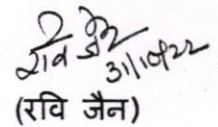 रवि जैन
31/10/22
(रवि जैन)